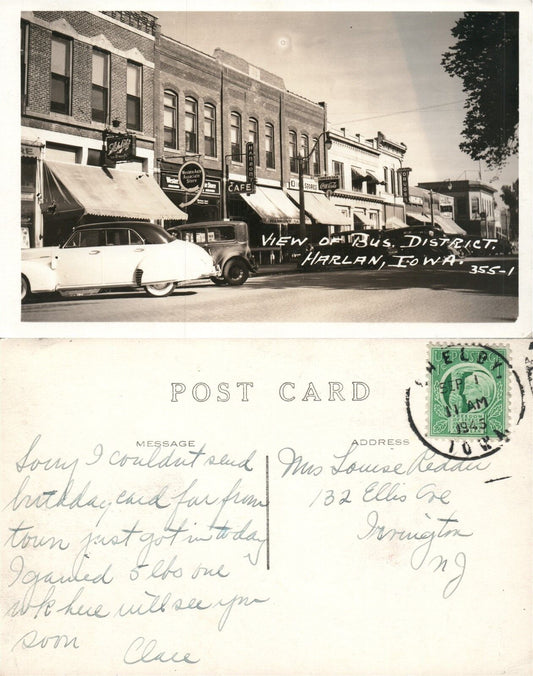 Western Auto
Associate
Store
CAFE
Coca-Cola
VIEW OF BUS. DISTRICT.
HARLAN, IOWA.
355-1
POST CARD
MESSAGE
ADDRESS
SHELBY,
SEP 1
11 AM
1945
IOWA
Sorry I couldn't send
birthday card far from
town just got in today
I gained 5 lbs one
wk here will see you
soon
Clare
Mrs Louise Redder
132 Ellis Ave
Irvington
NJ